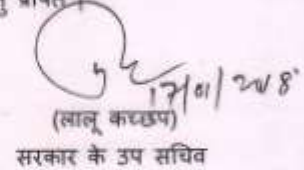 17/01/2018
(लालू कच्छप)
सरकार के उप सचिव